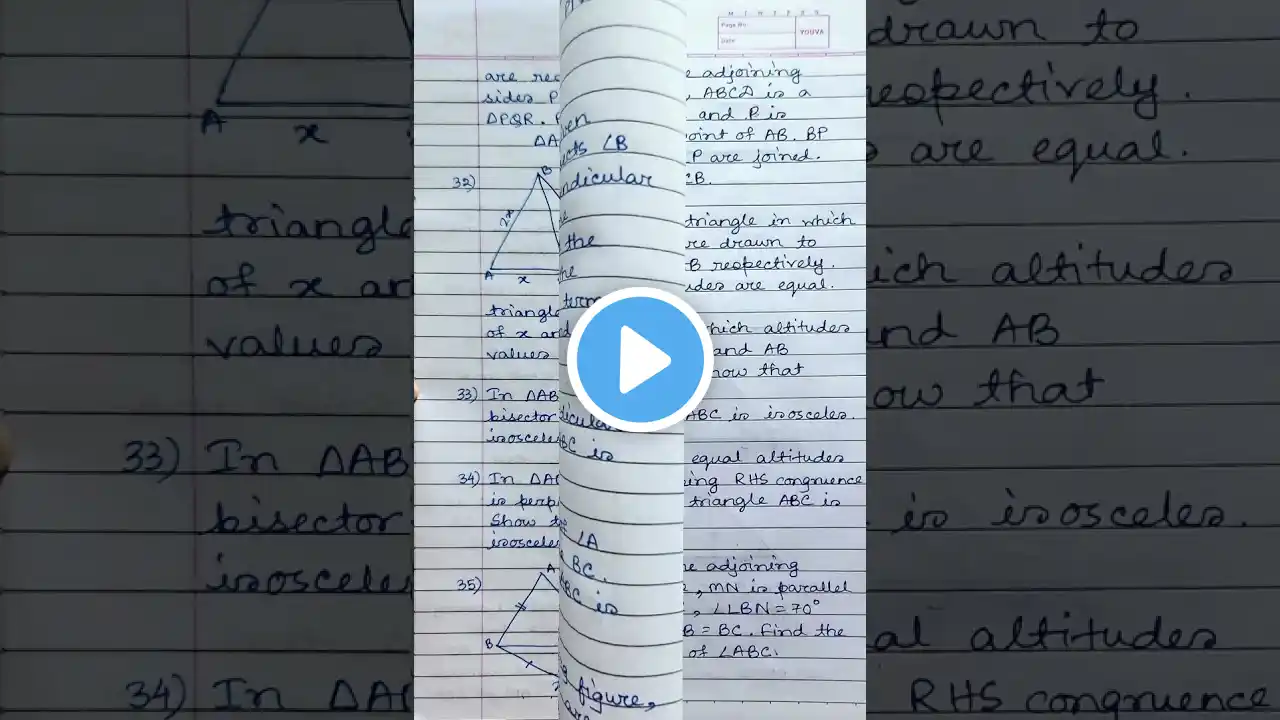 M T W T F S S
Page No.:
Date:
YOUVA
are
sides P
ΔPQR.
32)
B
2x
A
x
triangle
of x and
values
33) In ΔAB
bisector
isosceles
34) In ΔA
is perp
Show
isosceles
35)
A
B
∠B
ndicular
the
term
BC is
∠A
BC.
BC is
figure,
are
adjoining
, ABCD is a
and P is
oint of AB. BP
P are joined.
CB.
triangle in which
re drawn to
B respectively.
udes are equal.
hich altitudes
and AB
how that
ABC is isosceles.
equal altitudes
ing RHS congruence
triangle ABC is
adjoining
, MN is parallel
, ∠LBN = 70°
B = BC. Find the
of ∠ABC.
A
x
triangle
of x an
values
33) In ΔAB
bisector
isosceles
34) In ΔA
drawn to
respectively.
are equal.
ich altitudes
nd AB
ow that
is isosceles.
al altitudes
RHS congruence